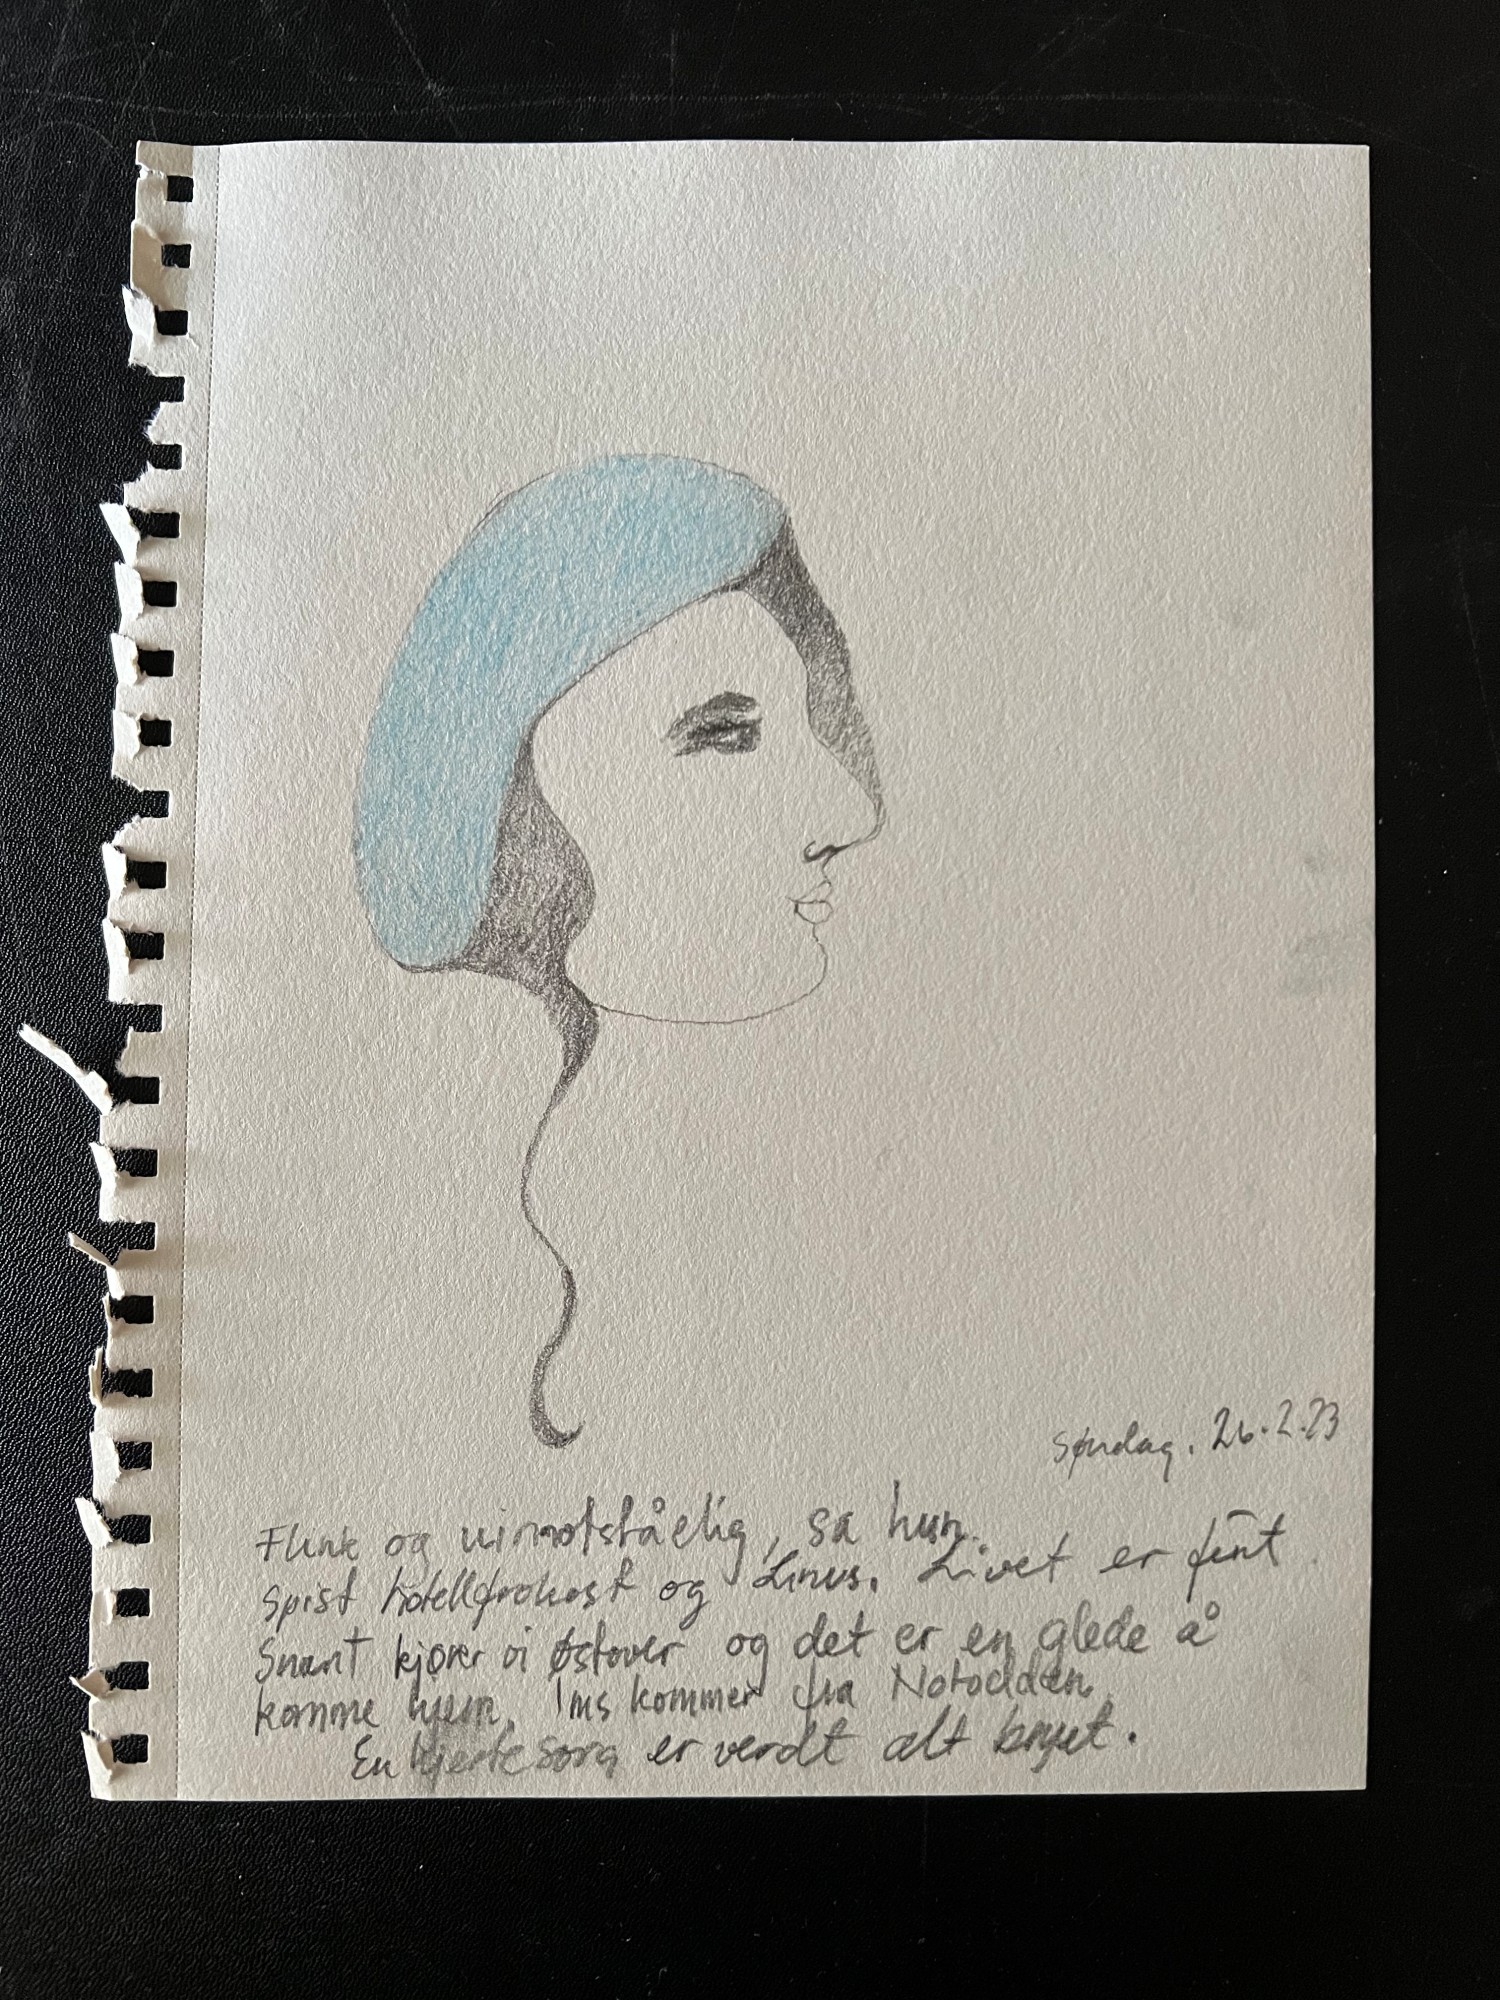 Søndag. 26.2.23
Flink og uimotståelig, sa hun.
Spist hotellfrokost og Linus. Livet er fint.
Snart kjører vi østover og det er en glede å
komme hjem. kommer fra Notodden.
En hjertesorg er verdt alt